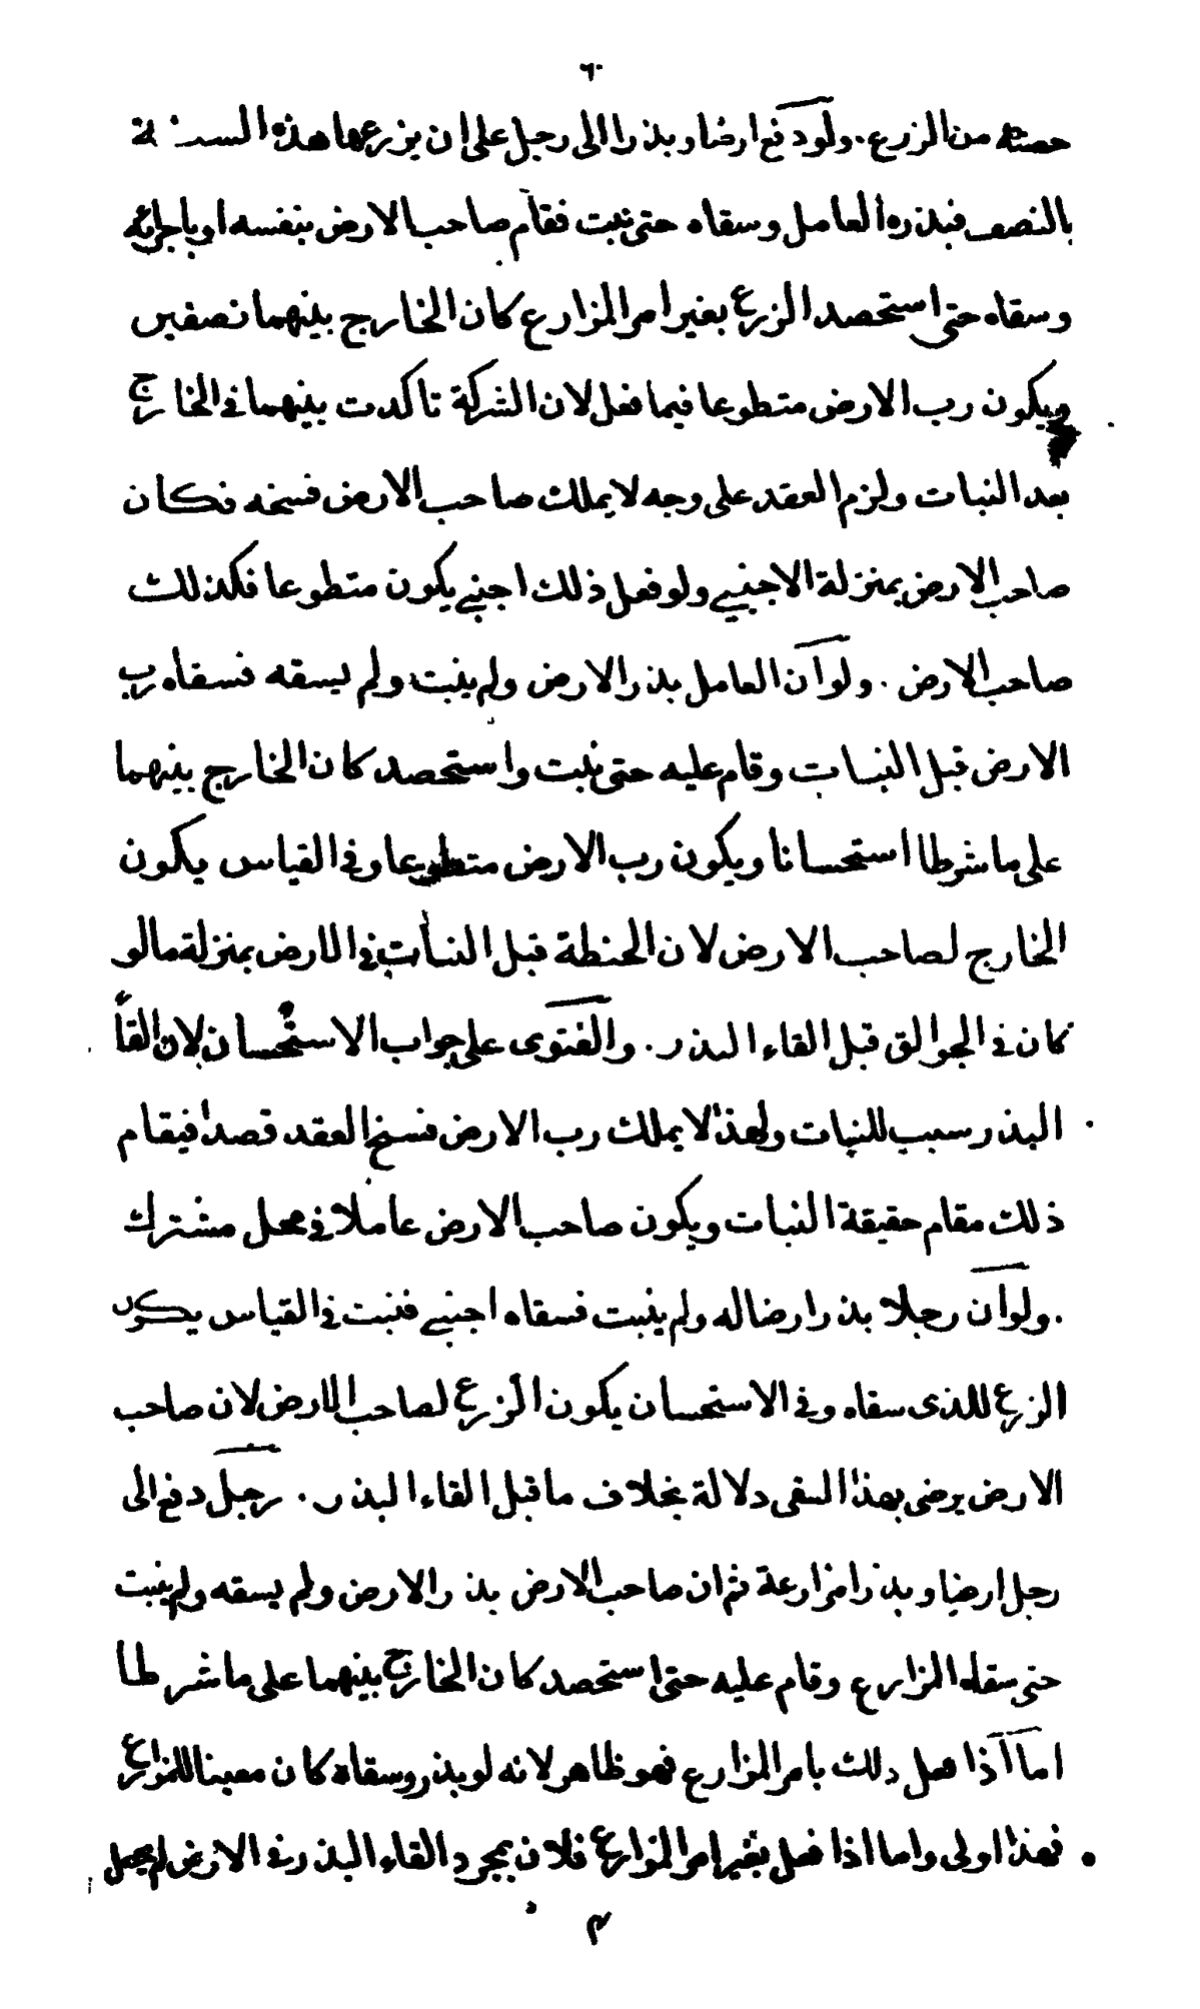 ٦٠
حصته من الزرع . ولو دفع ارضا وبذرا الى رجل على ان يزرعها هذه السنة
بالنصف فبذره العامل وسقاه حتى نبت فقام صاحب الارض بنفسه او باجرائه
وسقاه حتى استحصد الزرع بغير امر المزارع كان الخارج بينهما نصفين
ويكون رب الارض متطوعا فيما فعل لان الشركة تاكدت بينهما في الخارج
بعد النبات ولزم العقد على وجه لا يملك صاحب الارض فسخه فكان
صاحب الارض بمنزلة الاجنبي ولو فعل ذلك اجنبي يكون متطوعا فكذلك
صاحب الارض . ولو ان العامل بذر الارض ولم ينبت ولم يسقه فسقاه رب
الارض قبل النبات وقام عليه حتى نبت واستحصد كان الخارج بينهما
على ما شرطا استحسانا ويكون رب الارض متطوعا وفي القياس يكون
الخارج لصاحب الارض لان الحنطة قبل النبات في الارض بمنزلة مالو
كان في الجوالق قبل القاء البذر . والفتوى على جواب الاستحسان لان القاء
البذر سبب للنبات ولهذا لا يملك رب الارض فسخ العقد قصدا فيقام
ذلك مقام حقيقة النبات ويكون صاحب الارض عاملا في محل مشترك
. ولو ان رجلا بذر ارضا له ولم ينبت فسقاه اجنبي فنبت في القياس يكون
الزرع للذى سقاه وفي الاستحسان يكون الزرع لصاحب الارض لان صاحب
الارض يرضى بهذا السقى دلالة بخلاف ما قبل القاء البذر . رجل دفع الى
رجل ارضا وبذرا مزارعة ثم ان صاحب الارض بذر الارض ولم يسقه ولم ينبت
حتى سقاه المزارع وقام عليه حتى استحصد كان الخارج بينهما على ما شرطا
اما اذا فعل ذلك بامر المزارع فهو ظاهر لانه لو بذر وسقاه كان معينا للمزارع
فهذا اولى واما اذا فعل بغير امر المزارع فلان بمجرد القاء البذر في الارض لم يجعل
م